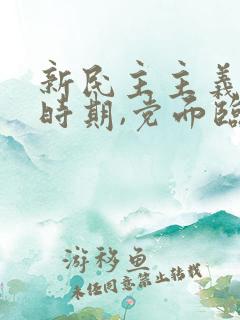 新民主主义
时期,党面临
游移鱼
未经同意禁止转载